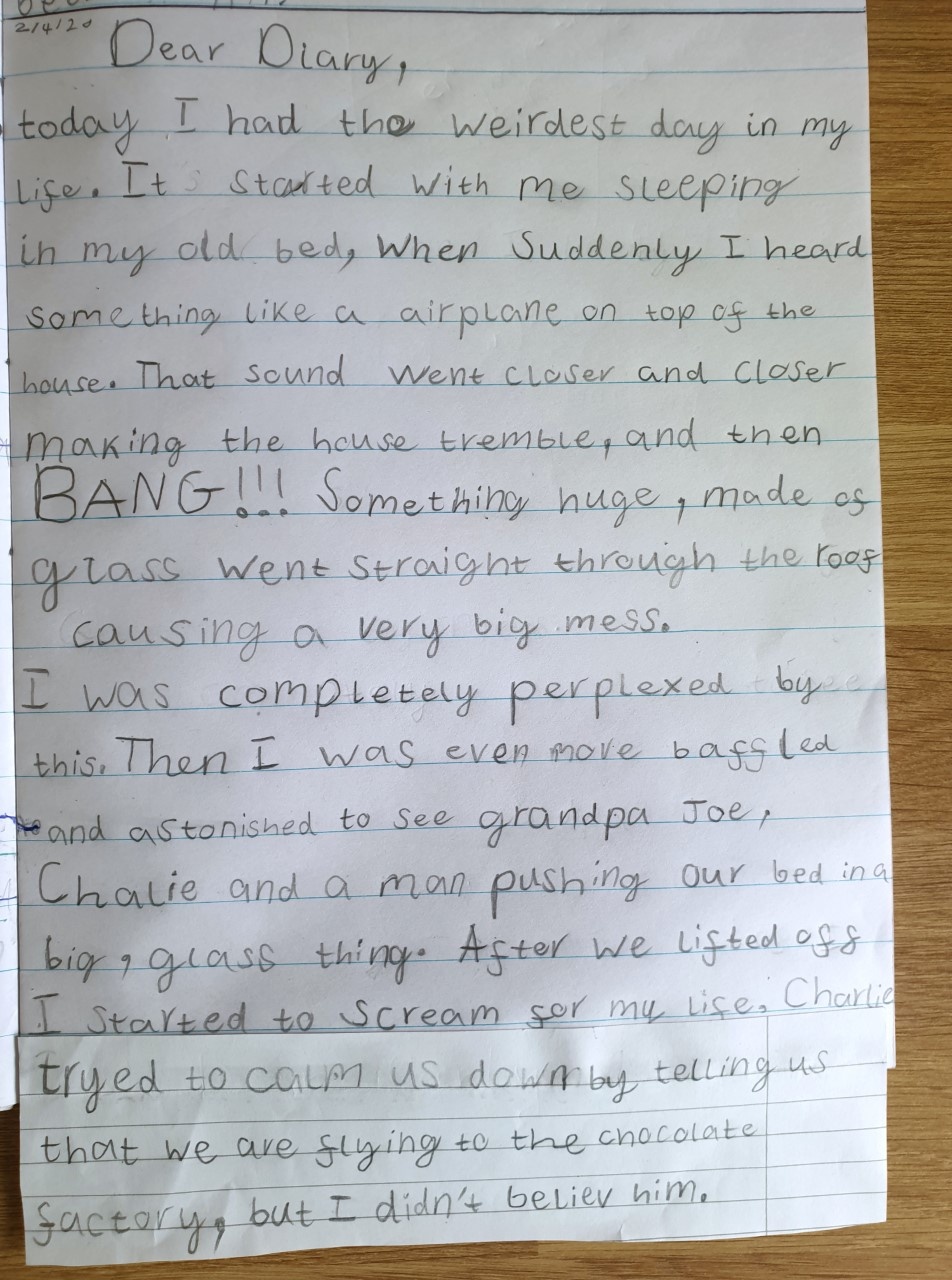 2/4/20
Dear Diary,
today I had the weirdest day in my
life. It started with me sleeping
in my old bed, when suddenly I heard
something like a airplane on top of the
house. That sound went closer and closer
making the house tremble, and then
BANG!!! Something huge, made of
glass went straight through the roof
causing a very big mess.
I was completely perplexed by
this. Then I was even more baffled
and astonished to see grandpa Joe,
Chalie and a man pushing our bed in a
big, glass thing. After we lifted off
I started to scream for my life. Charlie
tryed to calm us down by telling us
that we are flying to the chocolate
factory, but I didn't believ him.